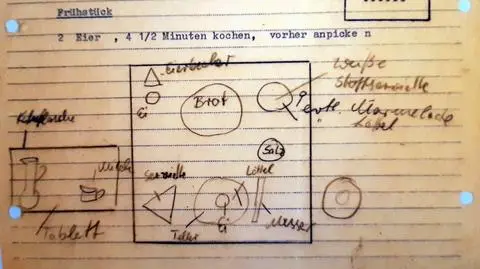 Frühstück
2 Eier , 4 1/2 Minuten kochen, vorher anpicke n
Eierbecher
Ei
Brot
Weiße
Stoffserviette
evtl. Marmelade
Löffel
Salz
Milch
Tablett
Serviette
Löffel
Teller
Ei
Messer